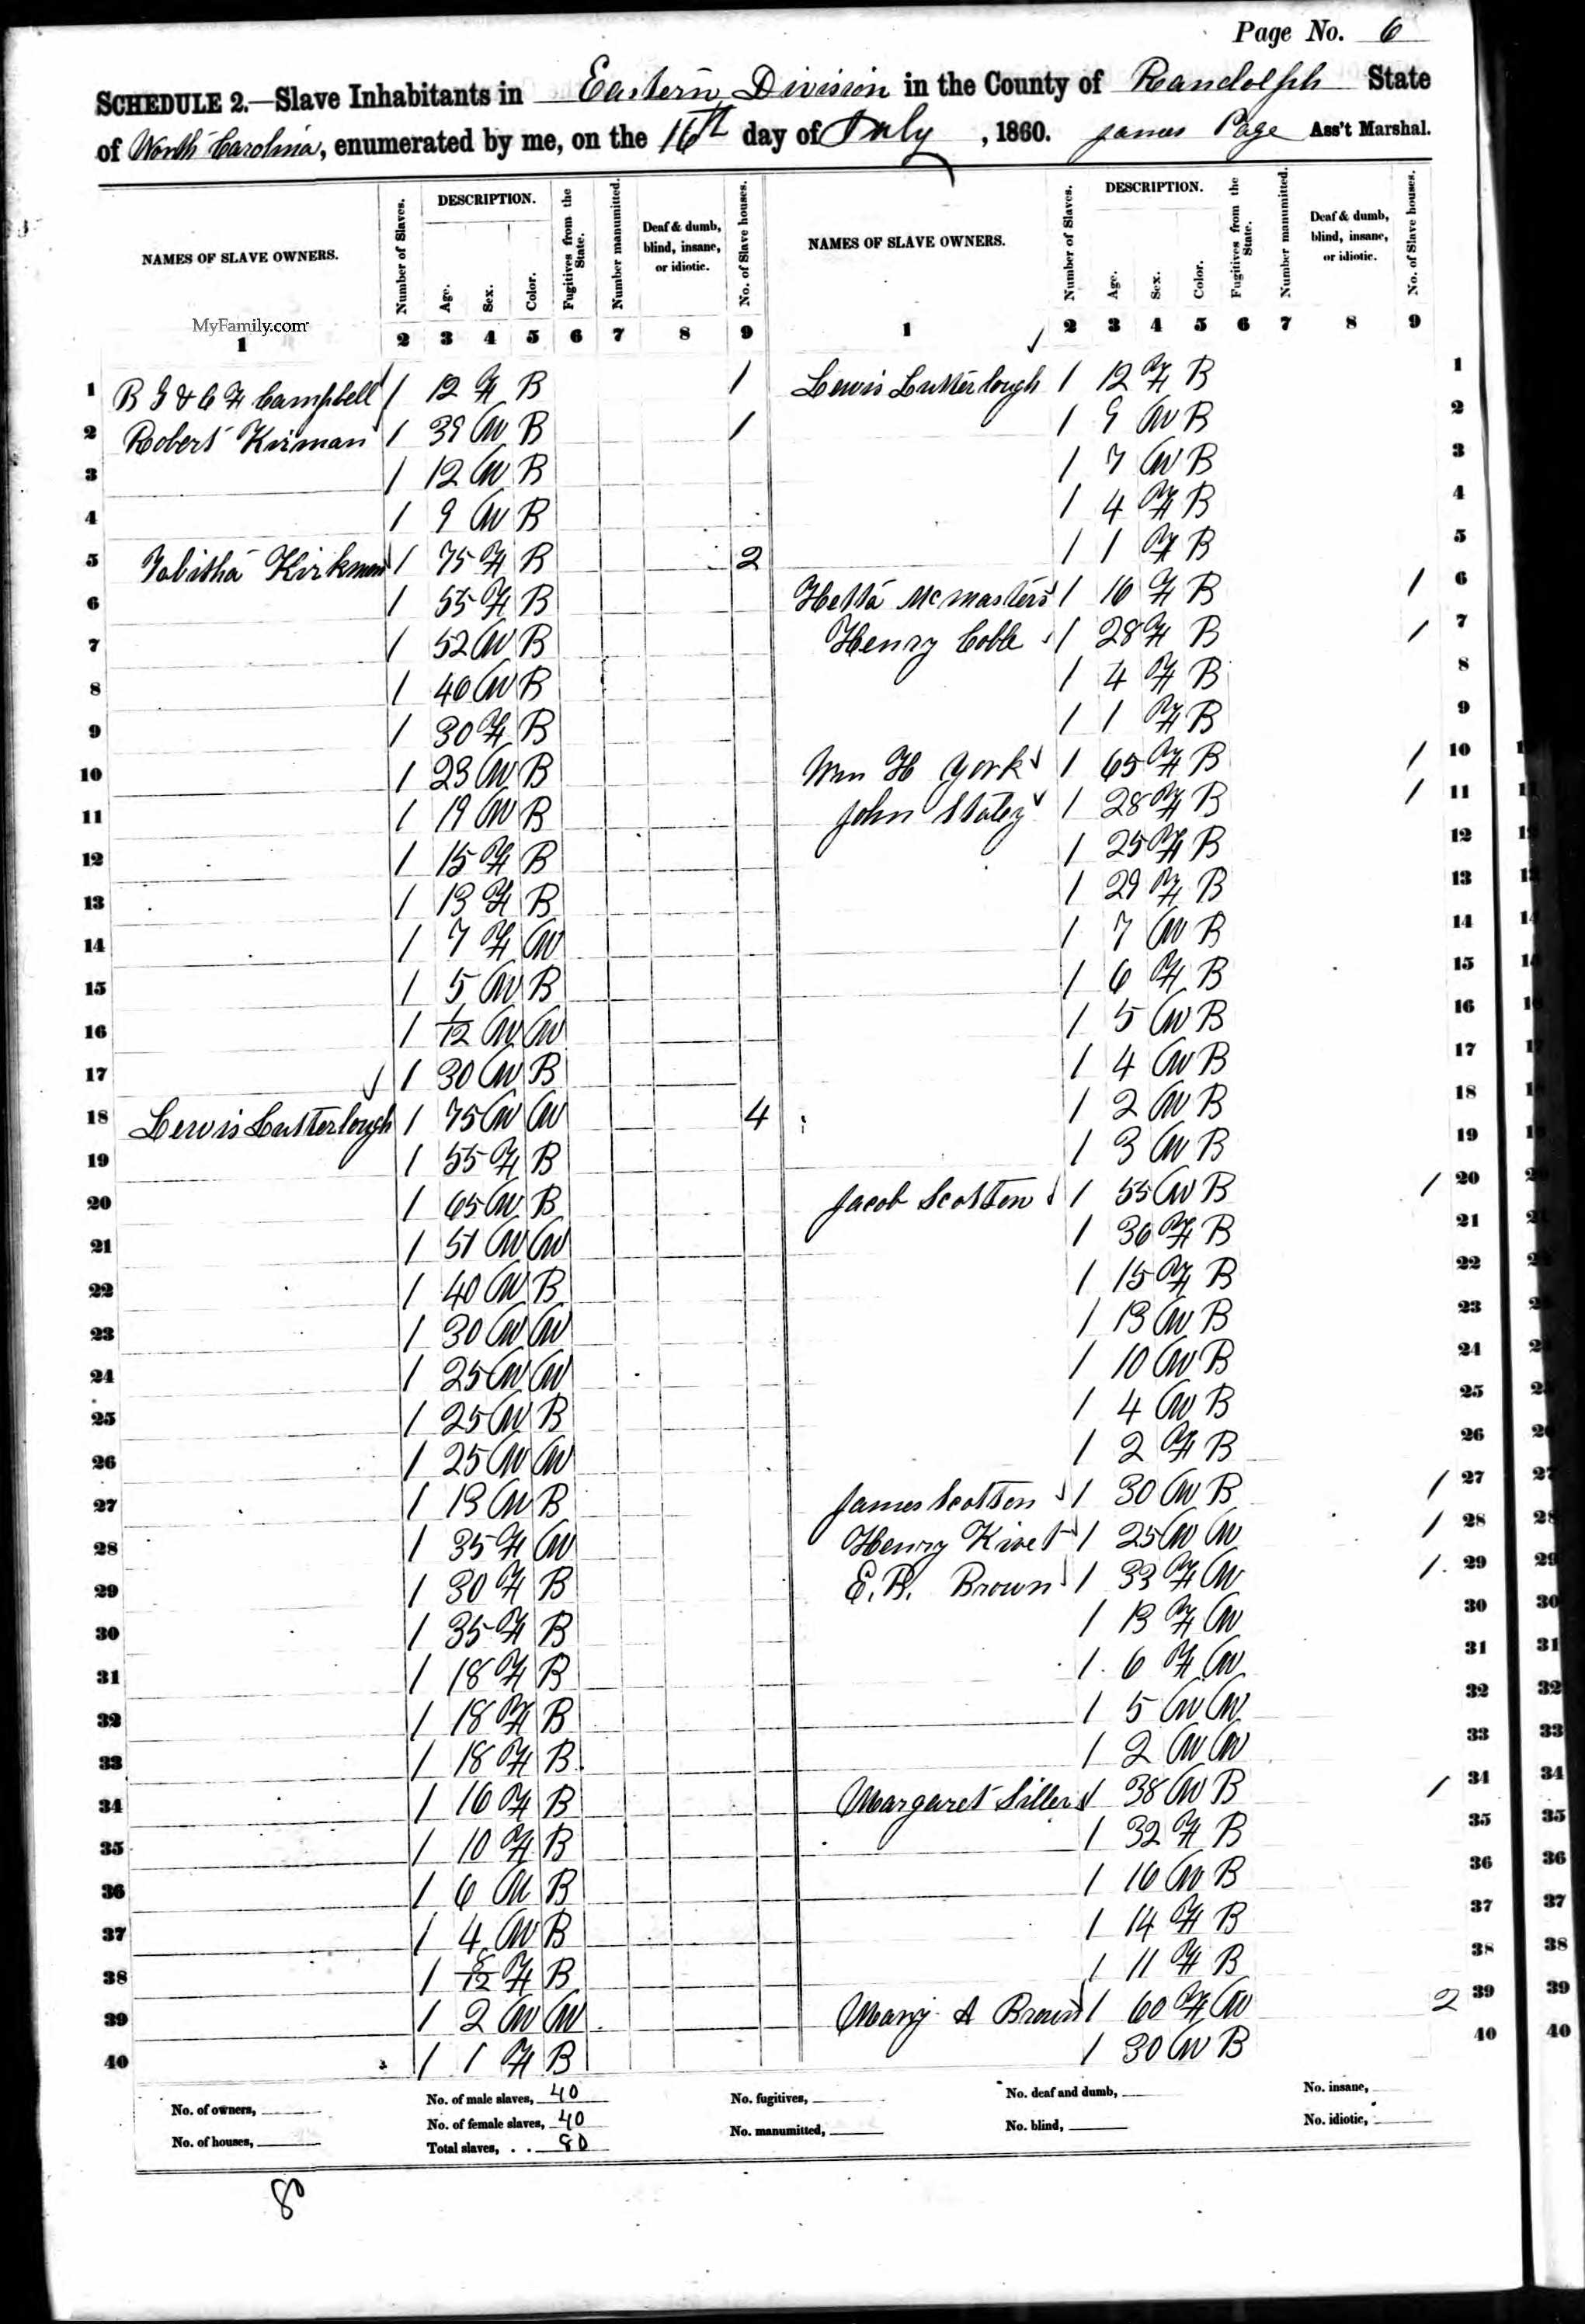 Page No. 6
SCHEDULE 2.—Slave Inhabitants in Eastern Division in the County of Randolph State
of North Carolina, enumerated by me, on the 16th day of July, 1860. James Page Ass't Marshal.
NAMES OF SLAVE OWNERS. Number of Slaves. DESCRIPTION. Age. Sex. Color. Fugitives from the State. Number manumitted. Deaf & dumb, blind, insane, or idiotic. No. of Slave houses. NAMES OF SLAVE OWNERS. Number of Slaves. DESCRIPTION. Age. Sex. Color. Fugitives from the State. Number manumitted. Deaf & dumb, blind, insane, or idiotic. No. of Slave houses.
MyFamily.com
1 2 3 4 5 6 7 8 9 1 2 3 4 5 6 7 8 9
1 B & C H Campbell 1 12 F B 1 Lewis Lutterlough 1 12 F B 1
2 Robert Kirman 1 39 M B 1 1 9 M B 2
3 1 12 M B 1 7 M B 3
4 1 9 M B 1 4 F B 4
5 Tabitha Kirkman 1 75 F B 2 1 1 F B 5
6 1 55 F B Hetta McMasters 1 16 F B 1 6
7 1 52 M B Henry Coble 1 28 F B 1 7
8 1 40 M B 1 4 F B 8
9 1 30 F B 1 1 F B 9
10 1 23 M B Wm H York 1 65 F B 1 10
11 1 19 M B John Staley 1 28 F B 1 11
12 1 15 F B 1 25 F B 12
13 1 13 F B 1 29 F B 13
14 1 7 F M 1 7 M B 14
15 1 5 M B 1 6 F B 15
16 1 1/12 M M 1 5 M B 16
17 1 30 M B 1 4 M B 17
18 Lewis Lutterlough 1 75 M M 4 1 2 M B 18
19 1 55 F B 1 3 M B 19
20 1 65 M B Jacob Scotton 1 55 M B 1 20
21 1 51 M M 1 36 F B 21
22 1 40 M B 1 15 F B 22
23 1 30 M M 1 13 M B 23
24 1 25 M M 1 10 M B 24
25 1 25 M B 1 4 M B 25
26 1 25 M M 1 2 F B 26
27 1 13 M B James Scotton 1 30 M B 1 27
28 1 35 F M Henry Kivet 1 25 M M 1 28
29 1 30 F B E. B. Brown 1 33 F M 1 29
30 1 35 F B 1 13 F M 30
31 1 18 F B 1 6 F M 31
32 1 18 F B 1 5 M M 32
33 1 18 F B 1 2 M M 33
34 1 16 F B Margaret Sillers 1 38 M B 1 34
35 1 10 F B 1 32 F B 35
36 1 6 M B 1 16 M B 36
37 1 4 M B 1 14 F B 37
38 1 8/12 F B 1 11 F B 38
39 1 2 M M Mary A Brown 1 60 F M 2 39
40 1 1 F B 1 30 M B 40
No. of owners, No. of male slaves, 40 No. fugitives, No. deaf and dumb, No. insane,
No. of houses, No. of female slaves, 40 No. manumitted, No. blind, No. idiotic,
Total slaves, . . 80
80